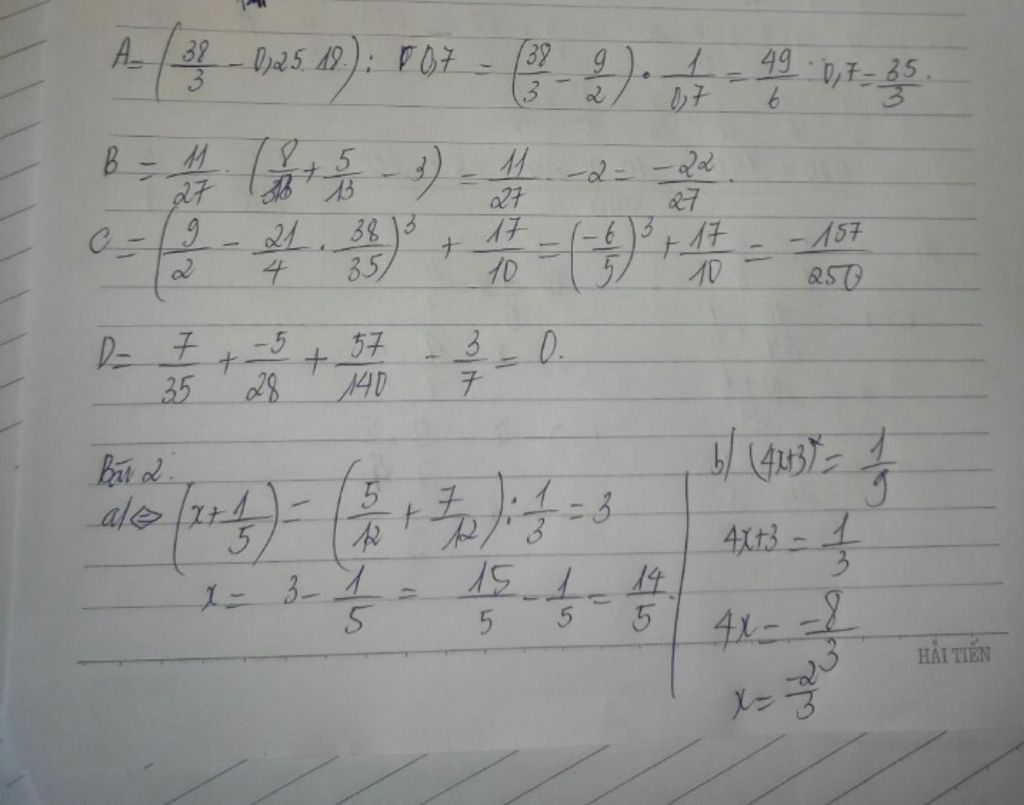 A = (38/3 - 0,25.18) : 0,7 = (38/3 - 9/2) . 1/0,7 = 49/6 : 0,7 = 35/3.
B = 11/27 . (8/13 + 5/13 - 3) = 11/27 . -2 = -22/27.
C = (9/2 - 21/4 . 38/35)³ + 17/10 = (-6/5)³ + 17/10 = -157/250
D = 7/35 + -5/28 + 57/140 - 3/7 = 0.
Bài 2.
a/ ⇔ (x + 1/5) = (5/12 + 7/12) : 1/3 = 3
x = 3 - 1/5 = 15/5 - 1/5 = 14/5.
b/ (4x+3)² = 1/9
4x+3 = 1/3
4x = -8/3
x = -2/3
HẢI TIẾN